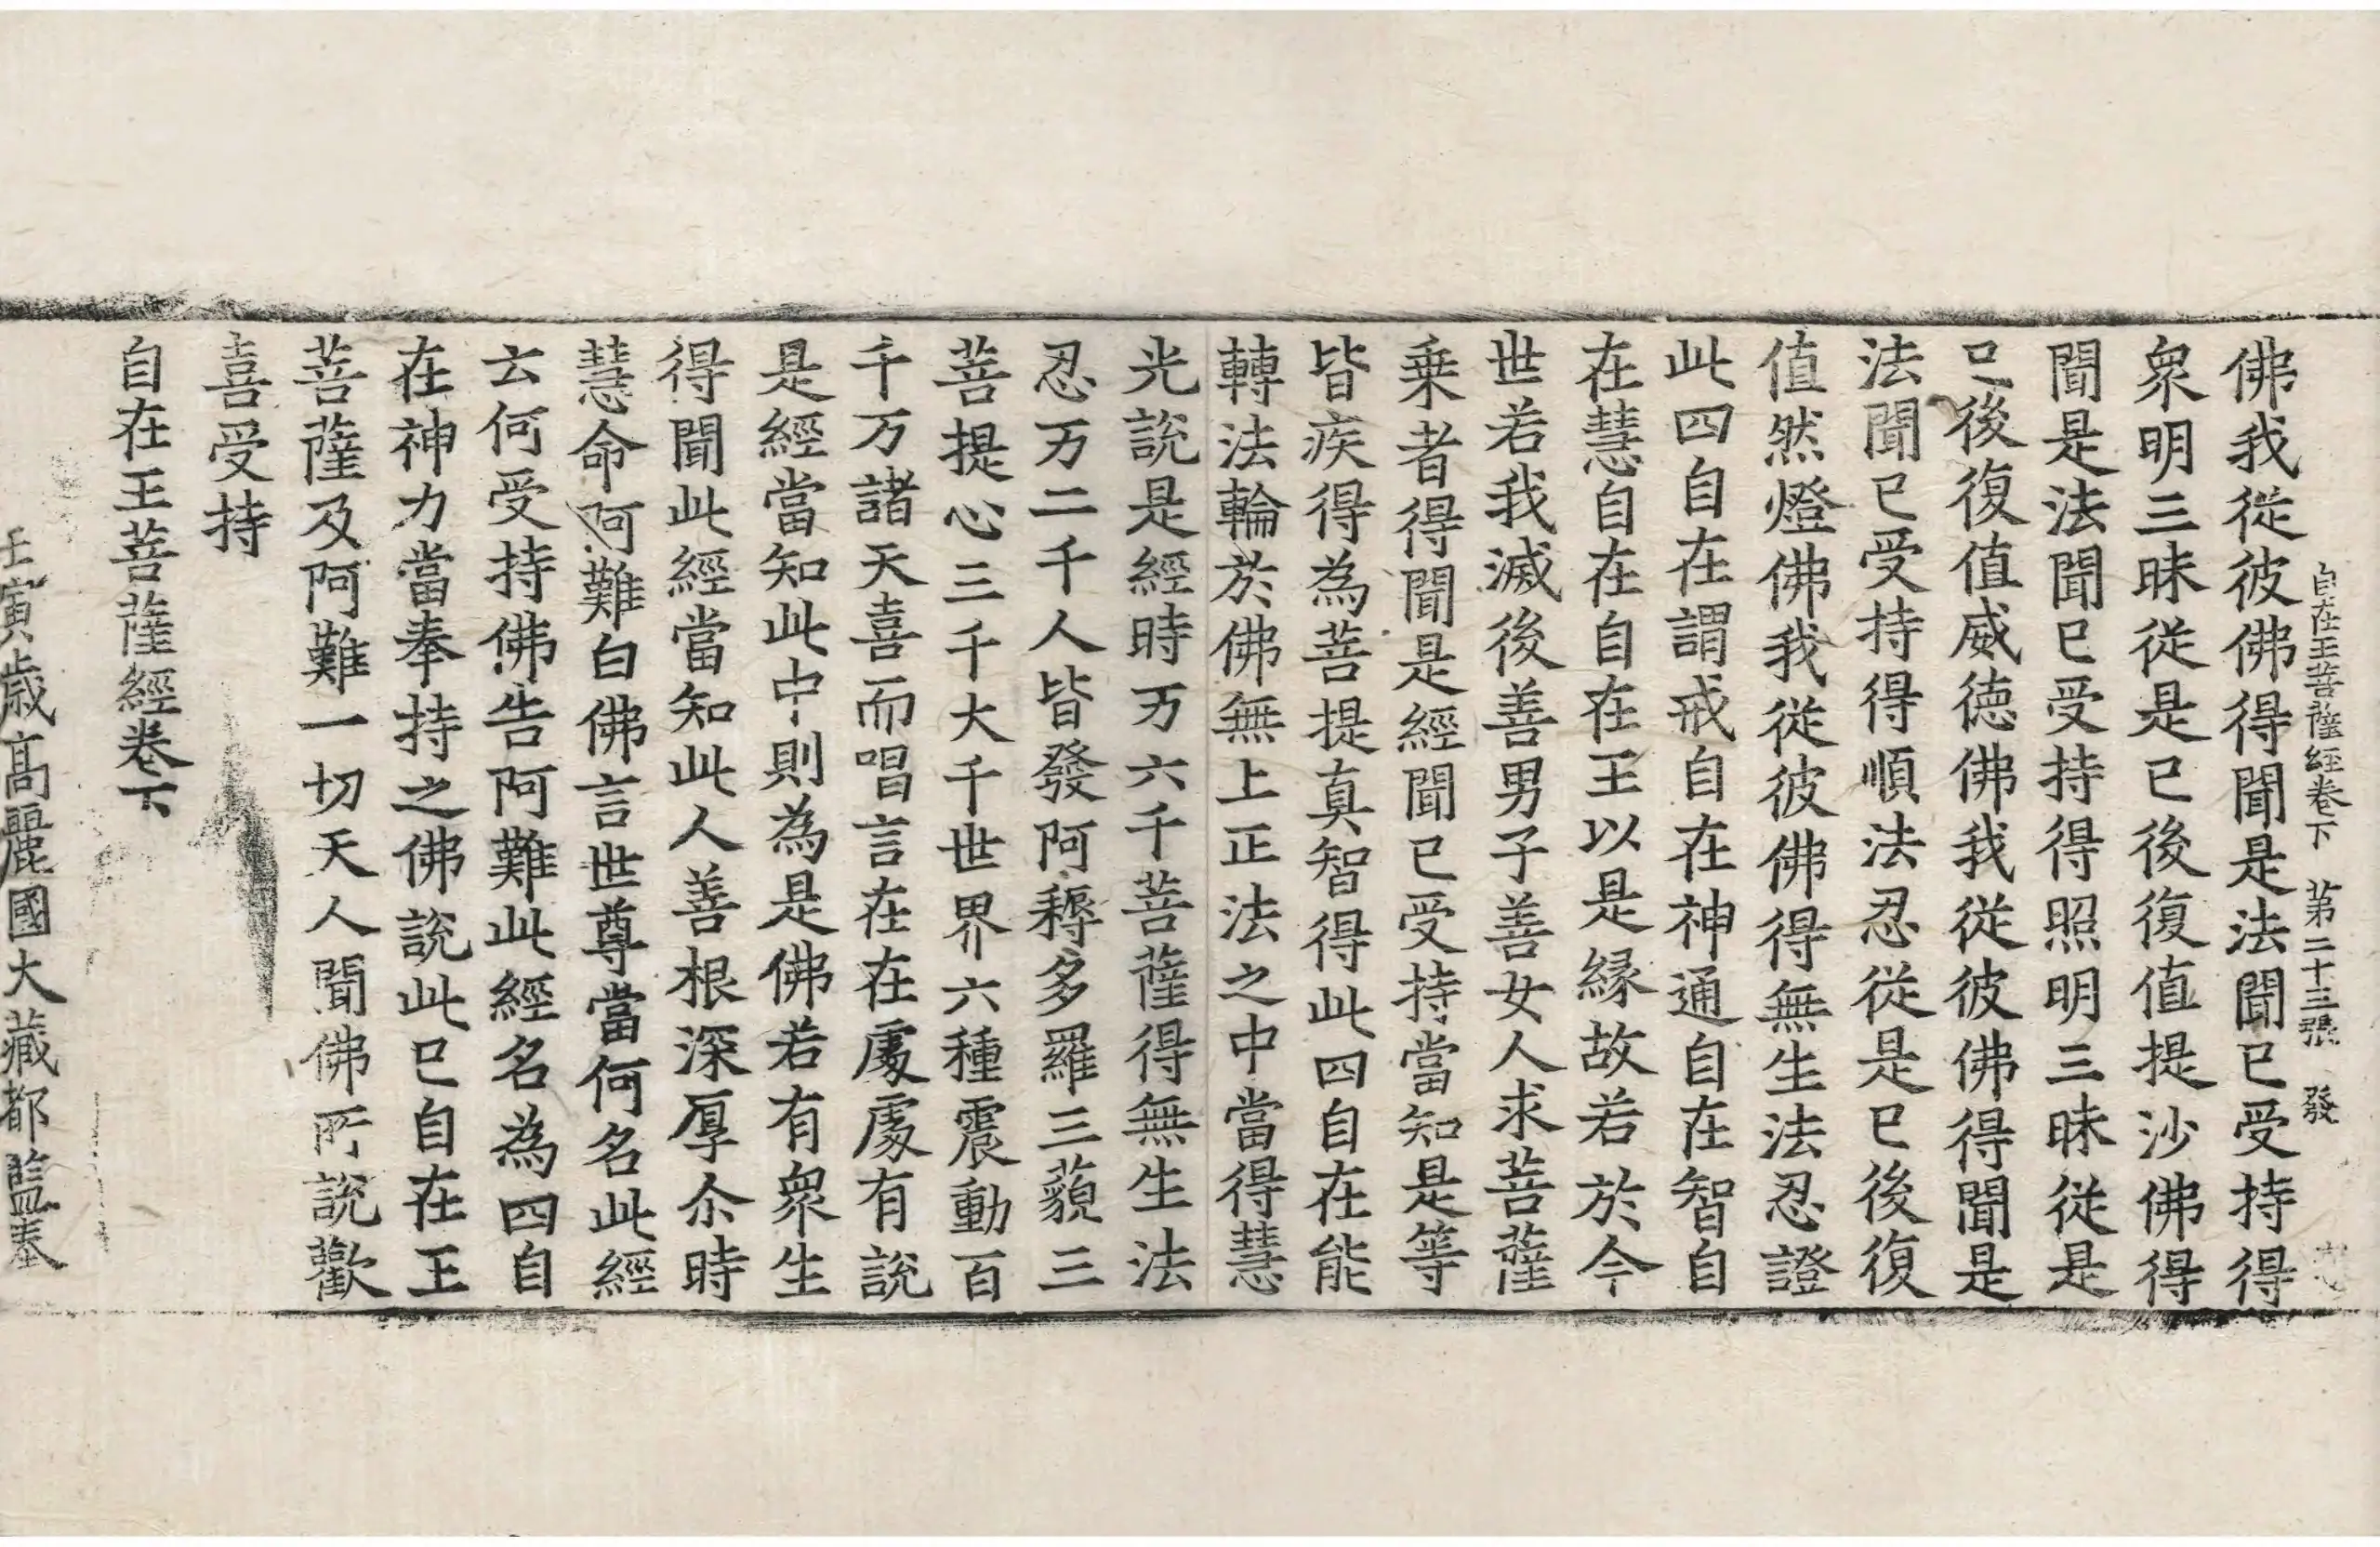 自在王菩薩經卷下 第二十三張 發
佛我從彼佛得聞是法聞已受持得
衆明三昧從是已後復值提沙佛得
聞是法聞已受持得照明三昧從是
已後復值威德佛我從彼佛得聞是
法聞已受持得順法忍從是已後復
值然燈佛我從彼佛得無生法忍證
此四自在謂戒自在神通自在智自
在慧自在自在王以是緣故若於今
世若我滅後善男子善女人求菩薩
乗者得聞是經聞已受持當知是等
皆疾得為菩提真智得此四自在能
轉法輪於佛無上正法之中當得慧
光說是經時万六千菩薩得無生法
忍万二千人皆發阿耨多羅三藐三
菩提心三千大千世界六種震動百
千万諸天喜而唱言在在處處有說
是經當知此中則為是佛若有衆生
得聞此經當知此人善根深厚尒時
慧命阿難白佛言世尊當何名此經
云何受持佛告阿難此經名為四自
在神力當奉持之佛說此已自在王
菩薩及阿難一切天人聞佛所說歡
喜受持
自在王菩薩經卷下
壬寅歲高麗國大藏都監奉